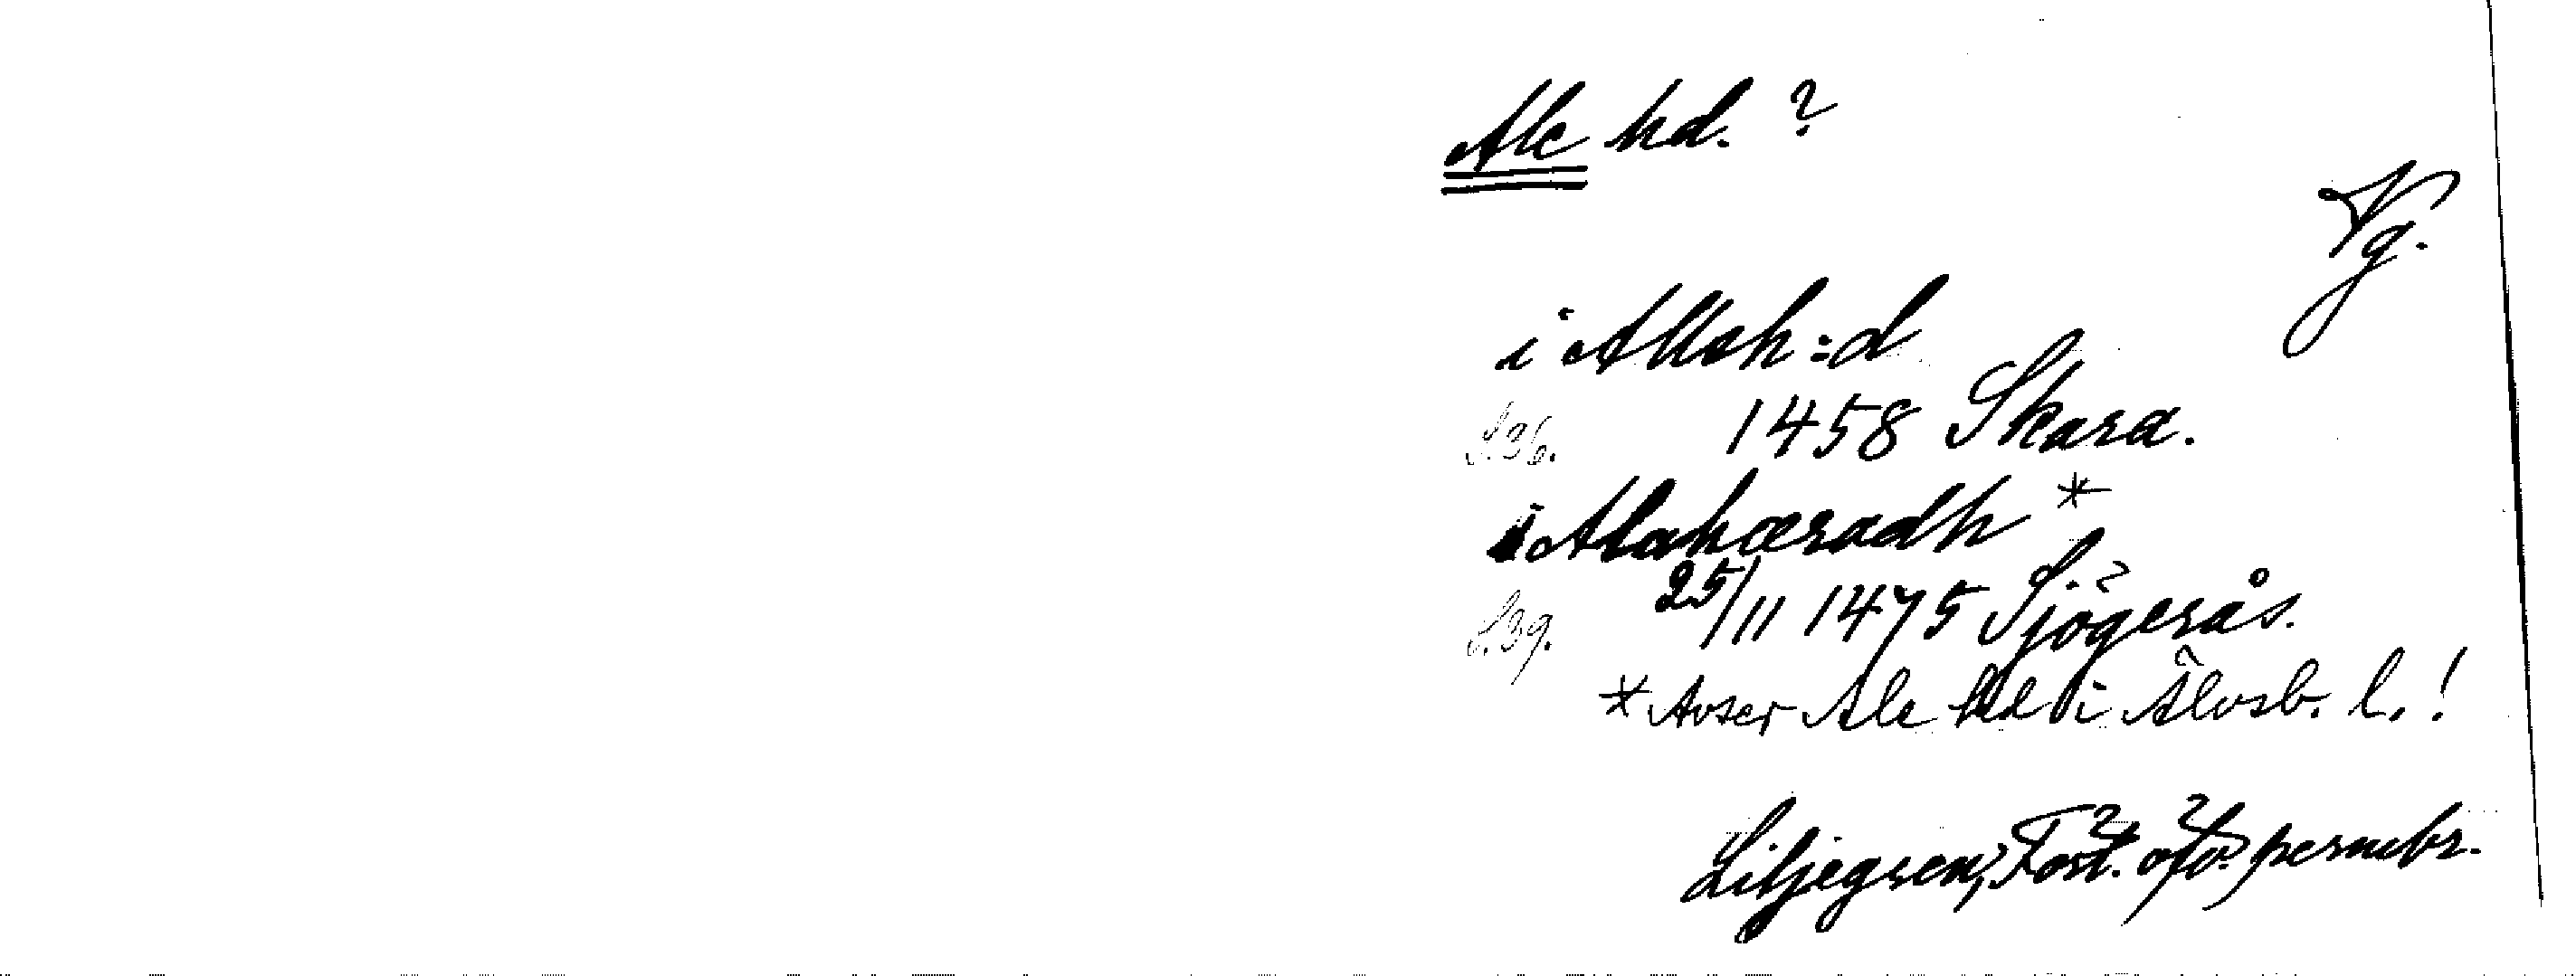 Ale hd. ?
Vg.
i Alleh:d
S.36. 1458 Skara.
i Alahæradh *
S.39. 25/11 1475 Sjögerås.
* Avser Ale hd i Älvsb. l. !
Liljegren, Fört. öfv. permebr.